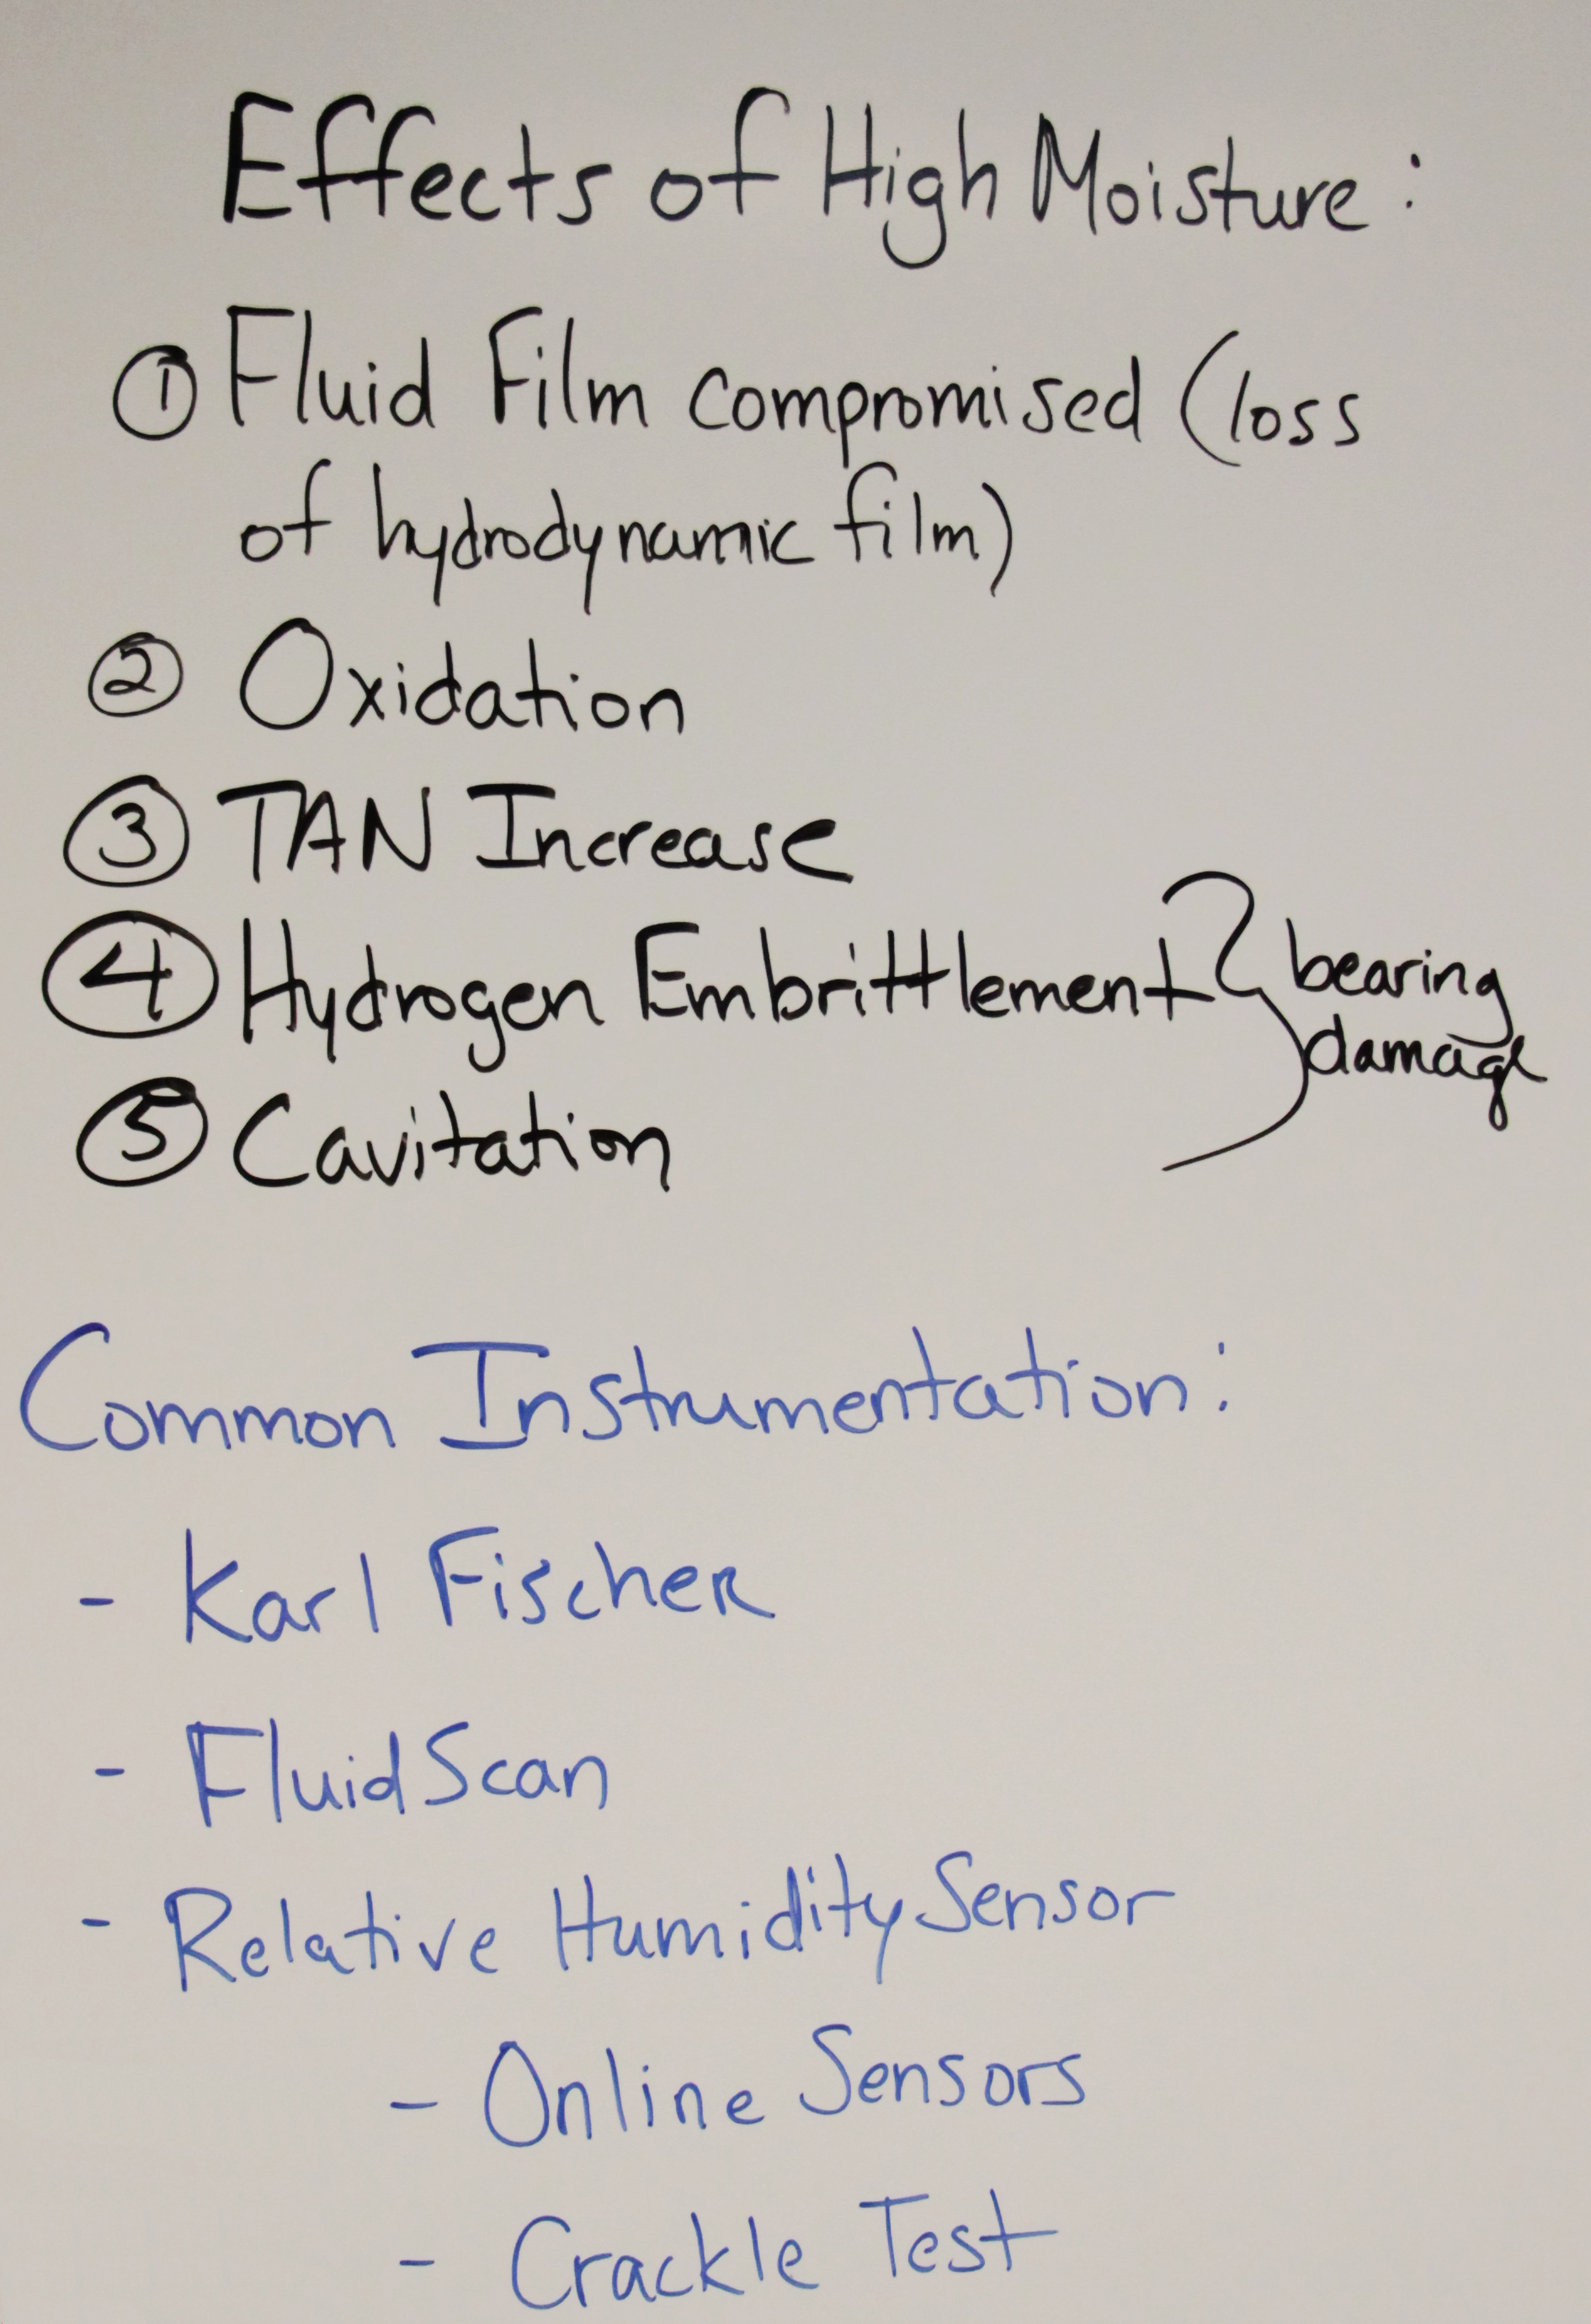 Effects of High Moisture:
① Fluid Film compromised (loss
of hydrodynamic film)
② Oxidation
③ TAN Increase
④ Hydrogen Embrittlement } bearing
damage
⑤ Cavitation
Common Instrumentation:
- Karl Fischer
- FluidScan
- Relative Humidity Sensor
- Online Sensors
- Crackle Test